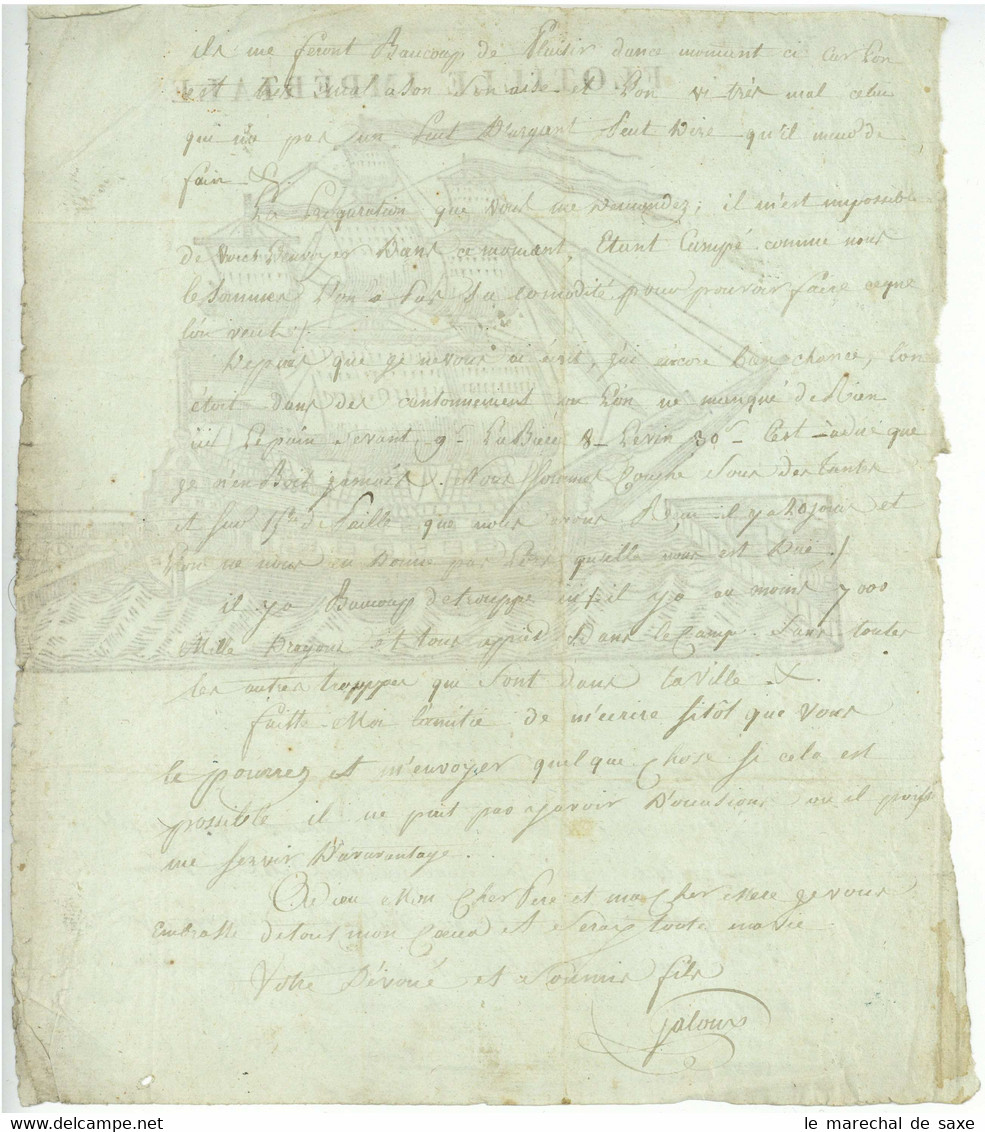 ils me feront Baucoup de Plaisir dance momant ci car l'on
est a son aise et l'on vi très mal celui
qui n'a pas un peut D'argant peut Dire qu'il meurs de
faim
FLOTTILLE IMPÉRIALE
La que vous me Demandez; il m'est impossible
de vous L'envoyer Dans ce momant, Etant Campé comme nous
le Sommes l'on a pas Sa comodité pour pouvoir faire ceque
l'on veut /.
Depuis que je ne vous ai écrit, j'ai ancore chance, l'on
étoit dans des cantonnement ou l'on ne manqué de Rien
ici Le pain Se vant 9s La Bière 8s Le vin 30s C'est adire que
je n'en Bois jamais. Nous Sommes Couché Sous des tantes
et Sur 15 de Paille que nous avons Reçu il y a 20 jours et
l'on ne nous en Donne pas Lors qu'elle nous est Due /
il ya Baucoup de trouppe ici il ya au moins 7000
Mille Dragons et tous apied Dans le Camp Sans toutes
les autres trouppes qui Sont dans la Ville
faitte Moi l'amitié de m'écrire sitôt que Vous
le pourrez et m'envoyer quelque Chose si cela est
possible il ne peut pas y avoir D'ocasions ou il puisse
me servir D'avavantage.
Adieu Mon Cher Pere et ma Cher Mere je vous
Embrasse de tout mon Coeur et Serai toute ma vie
Votre Dévoué et Soumis fils
jalour
le marechal de saxe